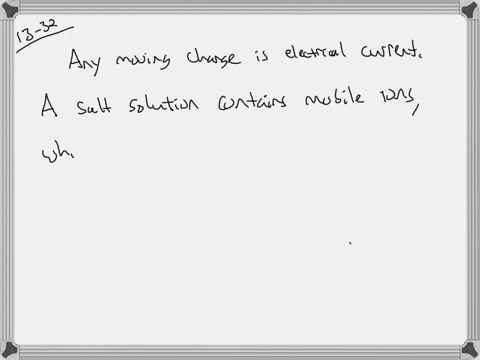 13-32
Any moving charge is electrical current.
A salt solution contains mobile ions,
wh